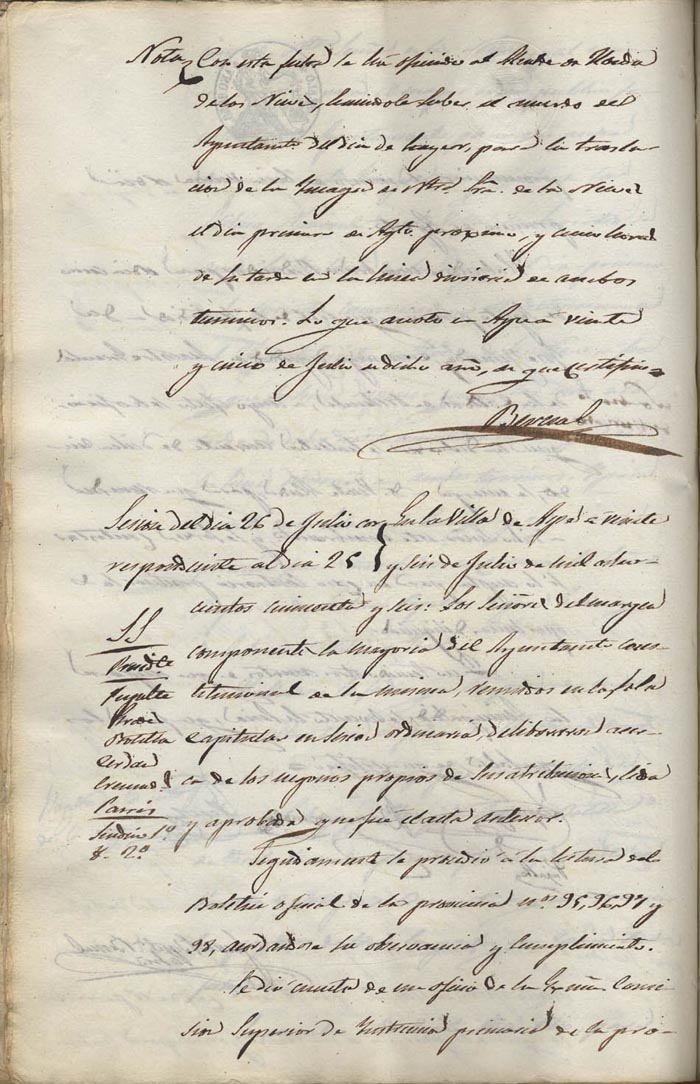 Nota Con esta fecha se ha oficiado al Alcalde de Hondon
de las Nieves, haciendole saber el acuerdo del
Ayuntamto del dia de hayer, para la trasla-
cion de la Imagen de Ntra. Sra. de las Nieves
el dia primero de Agto. proximo, y cinco horas
de la tarde en la linea divisoria de ambos
terminos. Lo que anoto en Aspe a veinte
y cinco de Julio de dicho año, de que certifico=
Berenal
Sesion del dia 26 de Julio cor
respondiente al dia 25
En la Villa de Aspe a veinte
y seis de Julio de mil ochos-
cientos cincuenta y seis: Los Señores del margen
SS
Presdte
Botella
Cerdan
Cremads
Sindico 1º
y. 2º
componente la mayoria del Ayuntamto cons-
titucional de la misma, reunidos en la sala
capitular en sesion ordinaria, deliberaron acer-
ca de los negocios propios de sus atribuciones, leida
y aprobada que fue el acta anterior.
Seguidamente se procedió a la lectura del
Boletin oficial de la provincia nos 95, 96, 97 y
98, acordandose su observancia y cumplimiento.
Se dio cuenta de un oficio de la Comi-
sion Superior de Instruccion primaria de la pro-